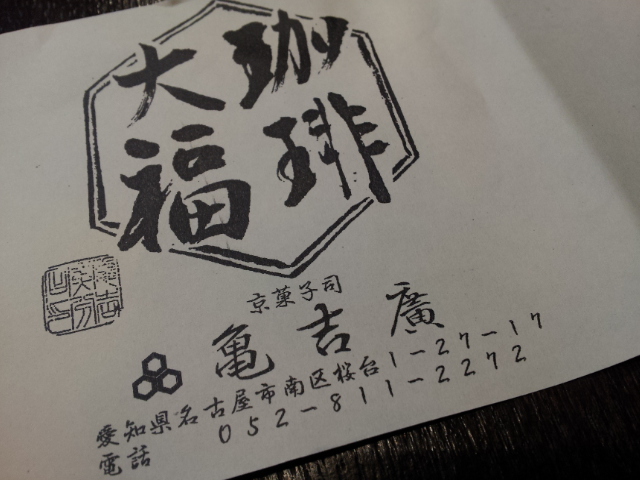 珈琲
大福
京菓子司
亀吉廣
愛知県名古屋市南区桜台1-27-17
電話 052-811-2272